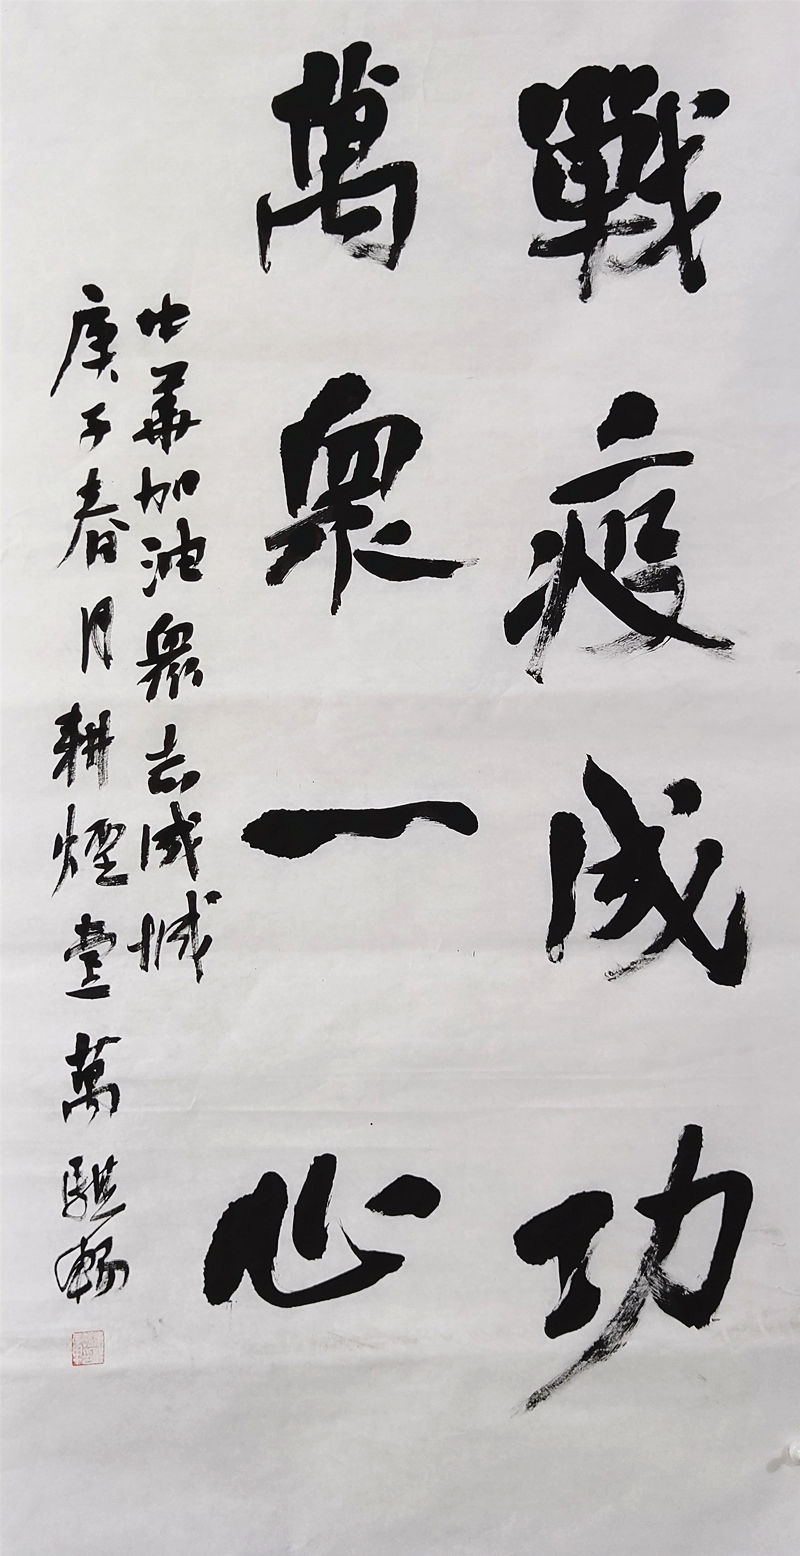 戰疫成功
萬眾一心
中華加油眾志成城
庚子春月耕煙堂萬騏暢